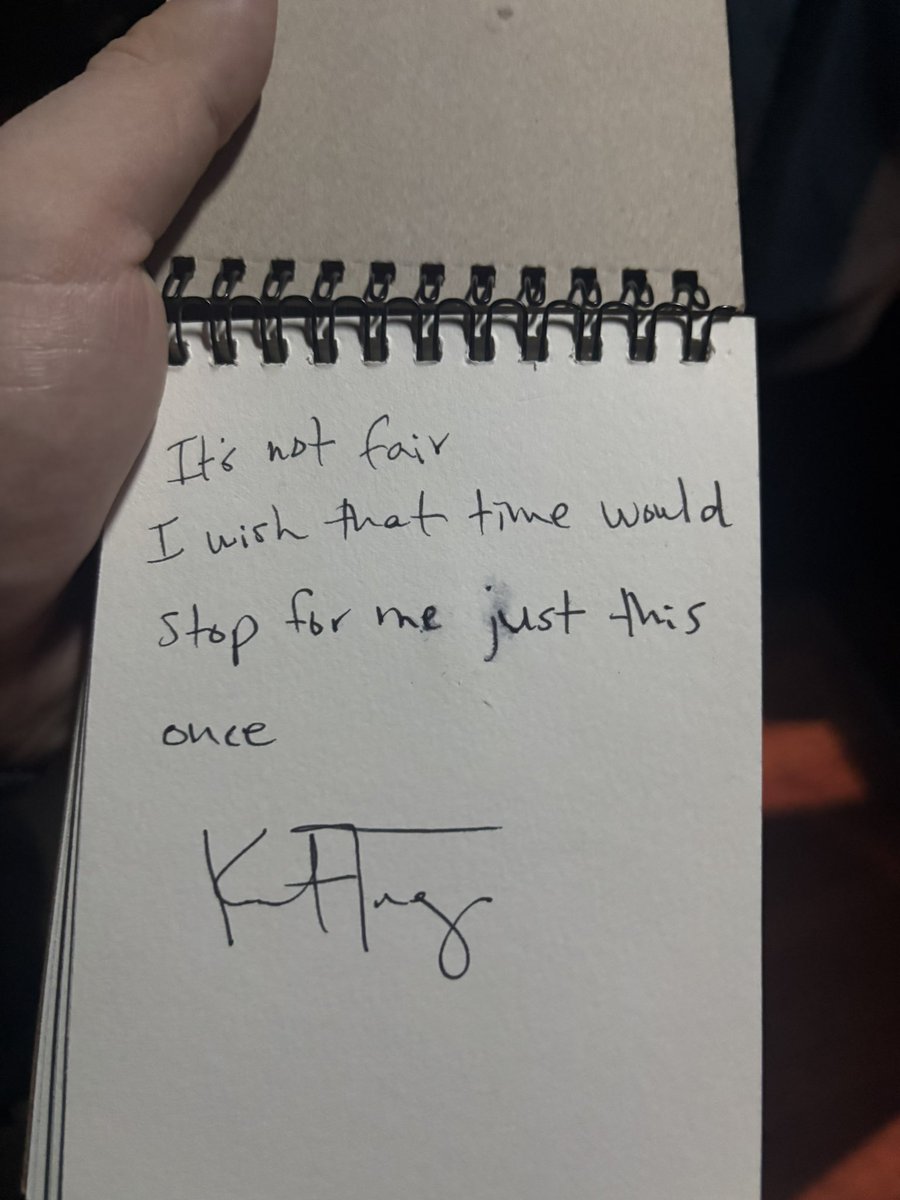 It's not fair
I wish that time would
stop for me just this
once